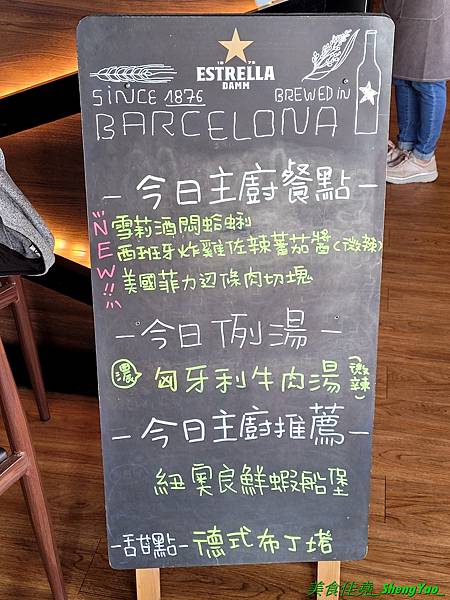 1876
ESTRELLA
DAMM
SINCE 1876
BREWED IN
BARCELONA
-今日主廚餐點-
NEW!!
雪莉酒悶蛤蜊
西班牙炸雞佐辣蕃茄醬(微辣)
美國菲力边條肉切塊
-今日例湯-
濃 匈牙利牛肉湯(微辣)
-今日主廚推薦-
紐奧良鮮蝦船堡
-甜點-德式布丁塔
美食佳堯_ShengYao_